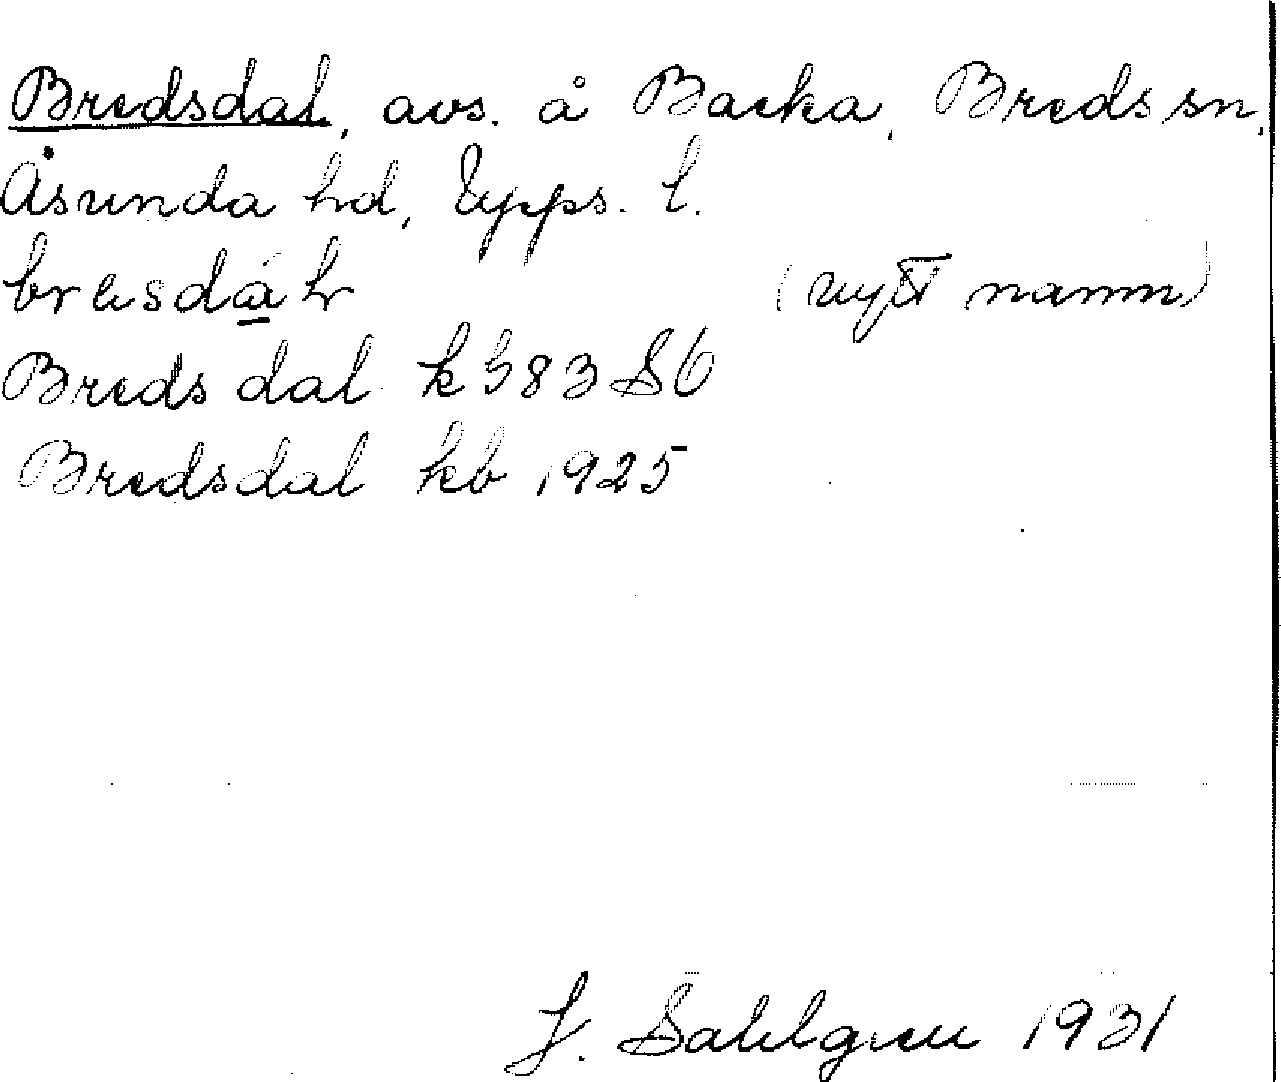 Bredsdal, avs. å Backa, Breds sn,
Åsunda hd, Upps. l.
(nytt namn)
Bredsdal k 383 S6
Bredsdal kb 1925
J. Sahlgren 1931